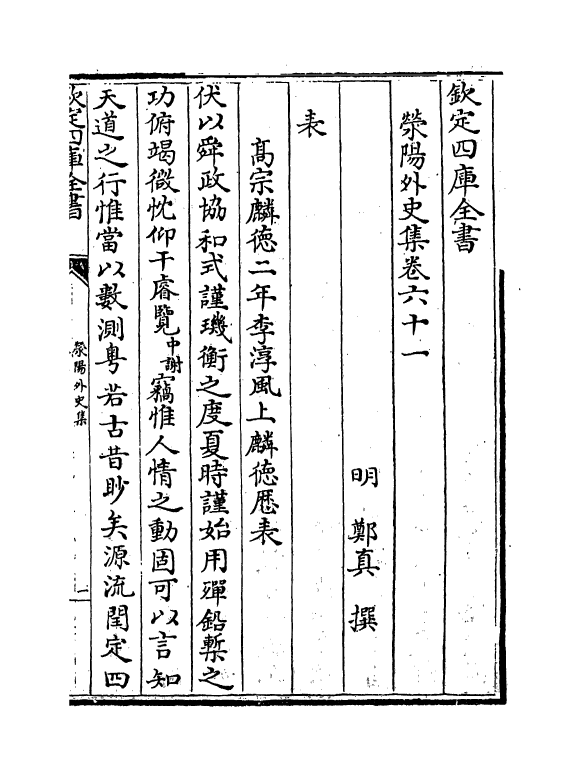 欽定四庫全書
滎陽外史集卷六十一
明 鄭真 撰
表
高宗麟德二年李淳風上麟德厯表
伏以舜政協和式謹璣衡之度夏時謹始用殫鉛槧之
功俯竭微忱仰干睿覽中謝竊惟人情之動固可以言知
天道之行惟當以數測粤若古昔眇矣源流閏定四
欽定四庫全書
滎陽外史集
一